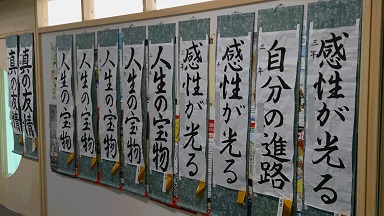 感性が光る
自分の進路
感性が光る
感性が光る
人生の宝物
人生の宝物
人生の宝物
人生の宝物
人生の宝物
真の友情
真の友情